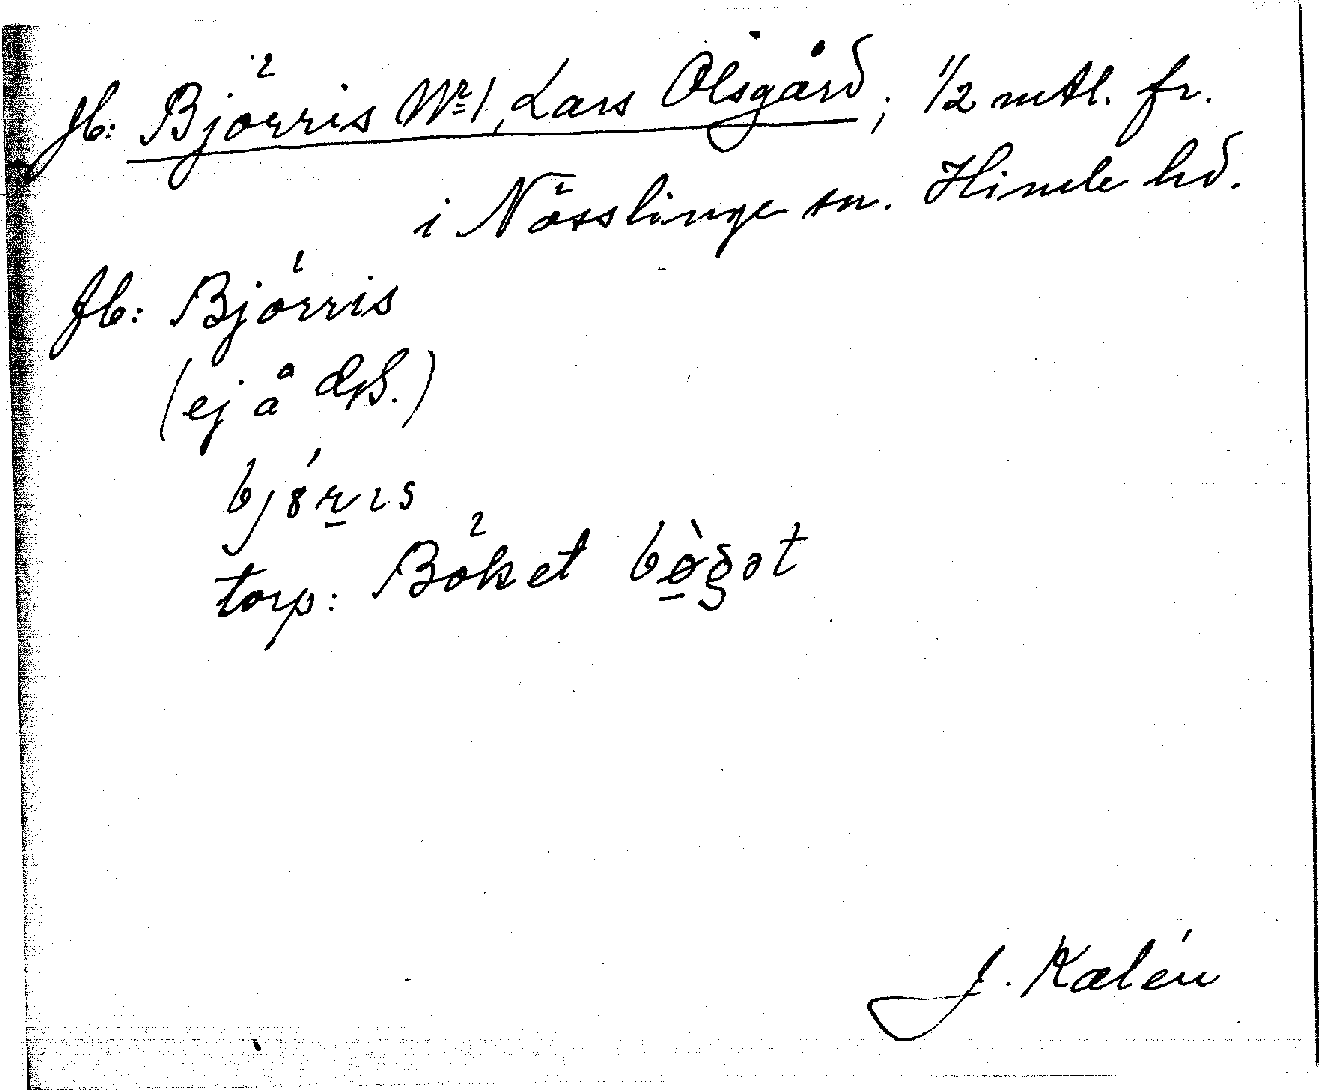 Jb: Björris Nr 1, Lars Olsgård; 1/2 mtl. fr.
i Nösslinge sn. Himle hd.
Jb: Björris
(ej å GS.)
torp: Böket
J. Kalén